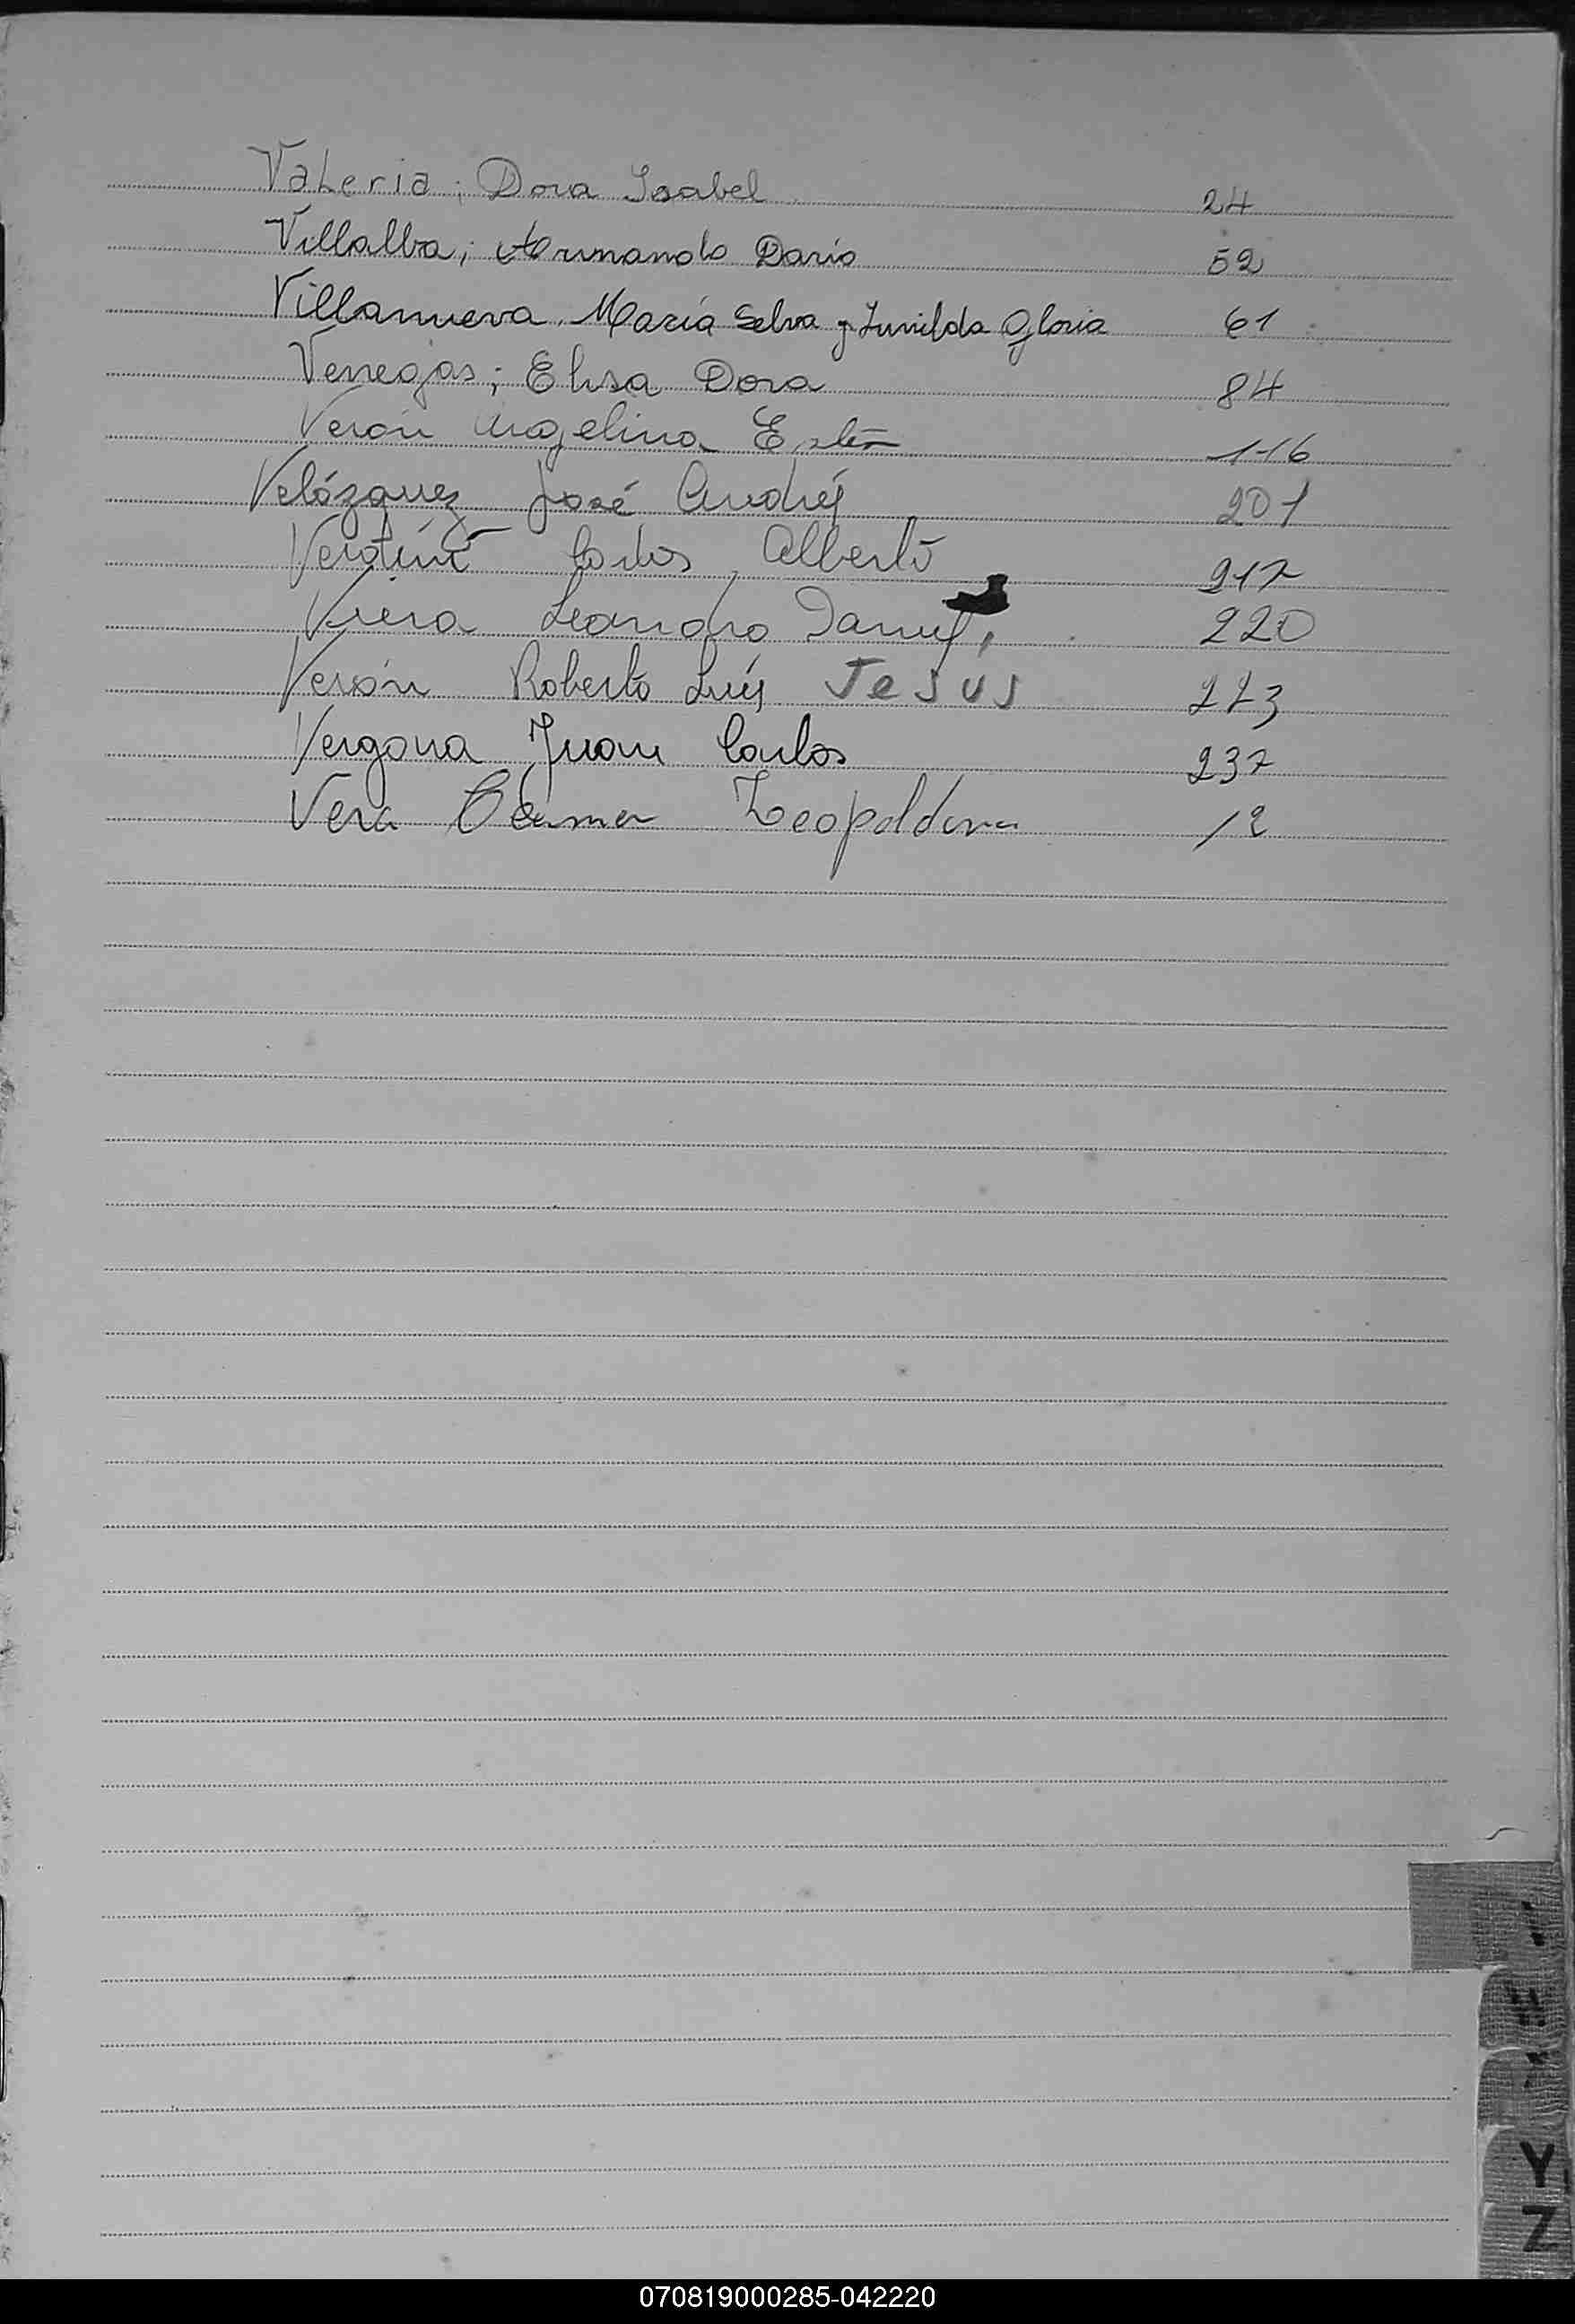 Valeria; Dora Isabel 24
Villalba; Armando Dario 52
Villanueva, María Selva y Lunilda Gloria 61
Venegas; Elisa Dora 84
Verón Angelina Ester 116
Velázquez José Andrés 201
Carlos Alberto 217
Viera Leandro Daniel 220
Verón Roberto Luis Jesus 223
Vergara Juan Carlos 237
Vera Leopoldina 12
Y
Z
070819000285-042220